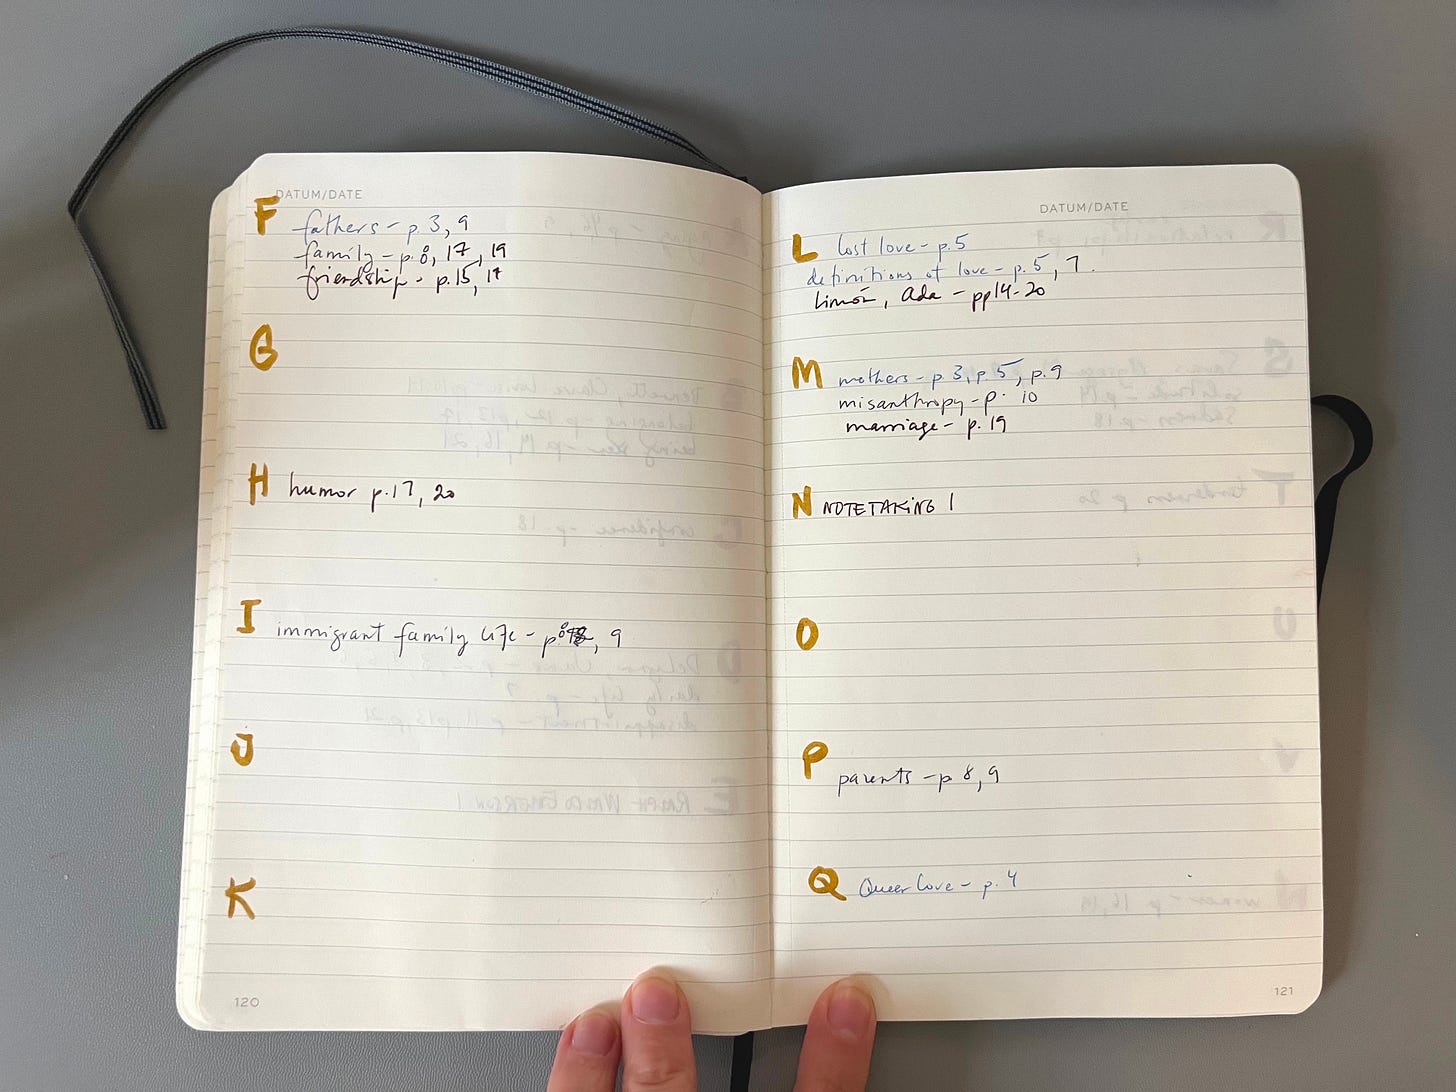 DATUM/DATE
F fathers - p. 3, 9
family - p. 8, 17, 19
friendship - p. 15, 17
G
H humor p. 17, 20
I immigrant family life - p 8, 9
J
K
120
DATUM/DATE
L lost love - p. 5
definitions of love - p. 5, 7.
Limón, Ada - pp 14-20
M mothers - p 3, p. 5, p. 9
misanthropy - p. 10
marriage - p. 19
N NOTETAKING 1
O
P parents - p 8, 9
Q Queer love - p. 4
121